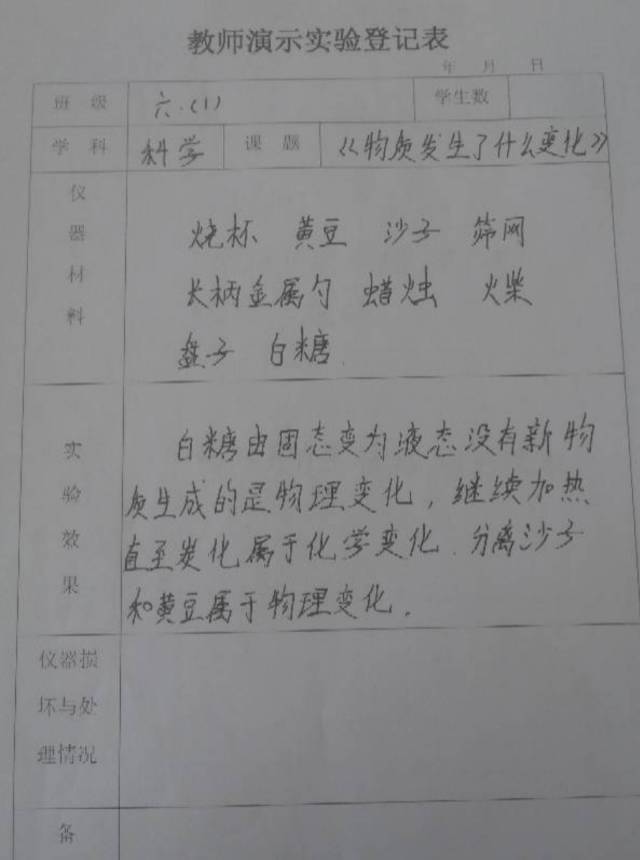 教师演示实验登记表
年 月 日
班 级 六.(1) 学生数
学 科 科学 课 题 《物质发生了什么变化》
仪器材料
烧杯 黄豆 沙子 筛网
长柄金属勺 蜡烛 火柴
盘子 白糖
实验效果
白糖由固态变为液态没有新物
质生成的是物理变化，继续加热
直至炭化属于化学变化.分离沙子
和黄豆属于物理变化.
仪器损
坏与处
理情况
备